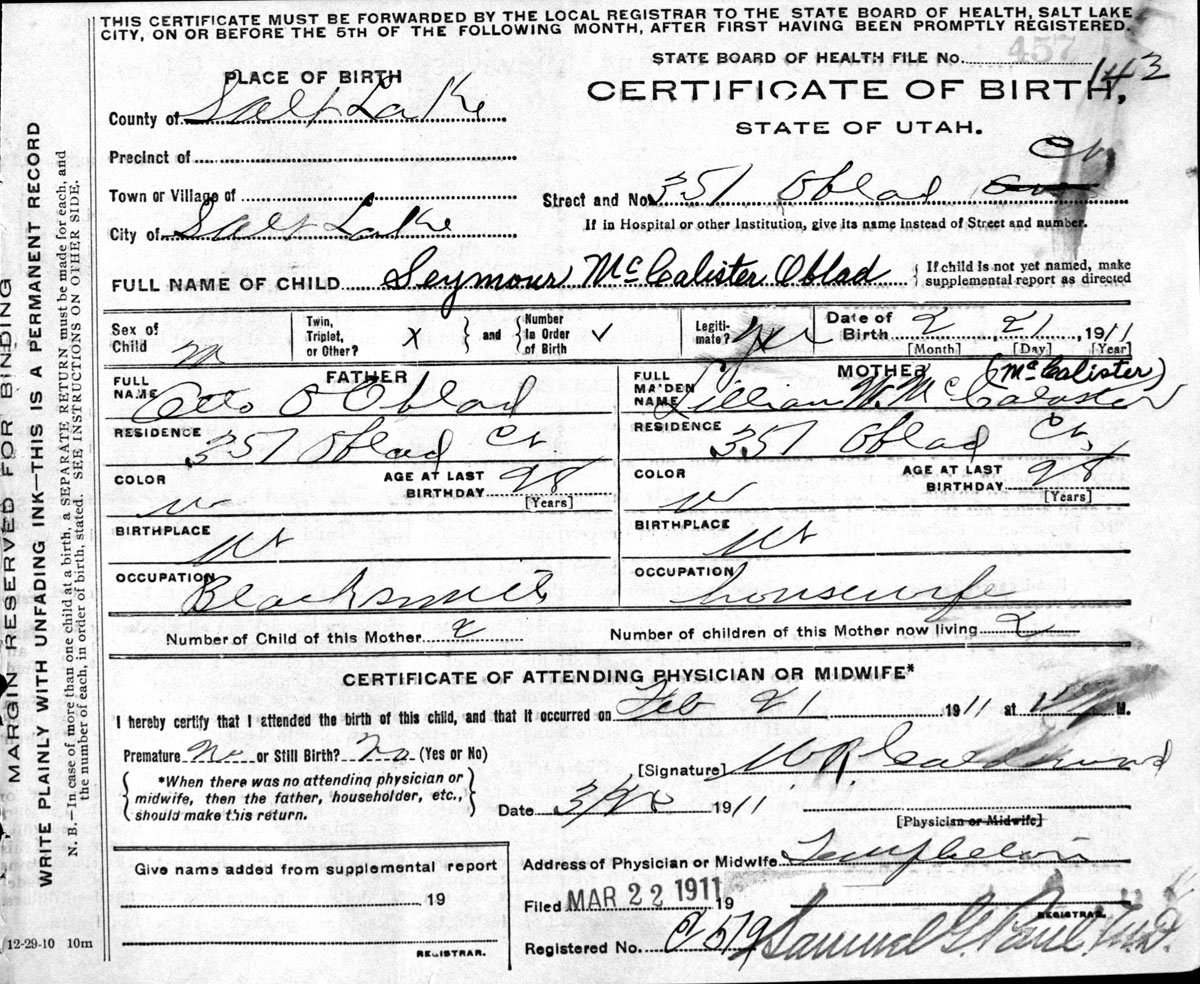 THIS CERTIFICATE MUST BE FORWARDED BY THE LOCAL REGISTRAR TO THE STATE BOARD OF HEALTH, SALT LAKE
CITY, ON OR BEFORE THE 5TH OF THE FOLLOWING MONTH, AFTER FIRST HAVING BEEN PROMPTLY REGISTERED.
STATE BOARD OF HEALTH FILE No. 457 143
PLACE OF BIRTH
CERTIFICATE OF BIRTH,
STATE OF UTAH.
County of Salt Lake
Precinct of
Town or Village of
City of Salt Lake
Street and No. 351 Oblad Ct
If in Hospital or other Institution, give its name instead of Street and number.
FULL NAME OF CHILD Seymour McCalister Oblad
If child is not yet named, make
supplemental report as directed
Sex of Child M
Twin, Triplet, or Other? X and Number in Order of Birth ✓
Legitimate?
Date of Birth 2 21 1911
[Month] [Day] [Year]
FATHER
FULL NAME Otto O Oblad
RESIDENCE 357 Oblad Ct
COLOR W
AGE AT LAST BIRTHDAY 28 [Years]
BIRTHPLACE Ut
OCCUPATION Blacksmith
MOTHER (McCalister)
FULL MAIDEN NAME Lillian W. McCalaster
RESIDENCE 357 Oblad Ct,
COLOR W
AGE AT LAST BIRTHDAY 28 [Years]
BIRTHPLACE Ut
OCCUPATION housewife
Number of Child of this Mother 2
Number of children of this Mother now living 2
CERTIFICATE OF ATTENDING PHYSICIAN OR MIDWIFE*
I hereby certify that I attended the birth of this child, and that it occurred on Feb 21 1911 at M.
Premature No or Still Birth? No (Yes or No)
*When there was no attending physician or
midwife, then the father, householder, etc.,
should make this return.
[Signature] W.R. Calderwood
Date 3/ 1911
[Physician or Midwife]
Give name added from supplemental report
19
REGISTRAR.
Address of Physician or Midwife Templeton
Filed MAR 22 1911 19
REGISTRAR.
Registered No. 579 Samuel G. Paul, M.D.
12-29-10 10m
MARGIN RESERVED FOR BINDING
WRITE PLAINLY WITH UNFADING INK—THIS IS A PERMANENT RECORD
N. B.—In case of more than one child at a birth, a SEPARATE RETURN must be made for each, and
the number of each, in order of birth, stated. SEE INSTRUCTIONS ON OTHER SIDE.